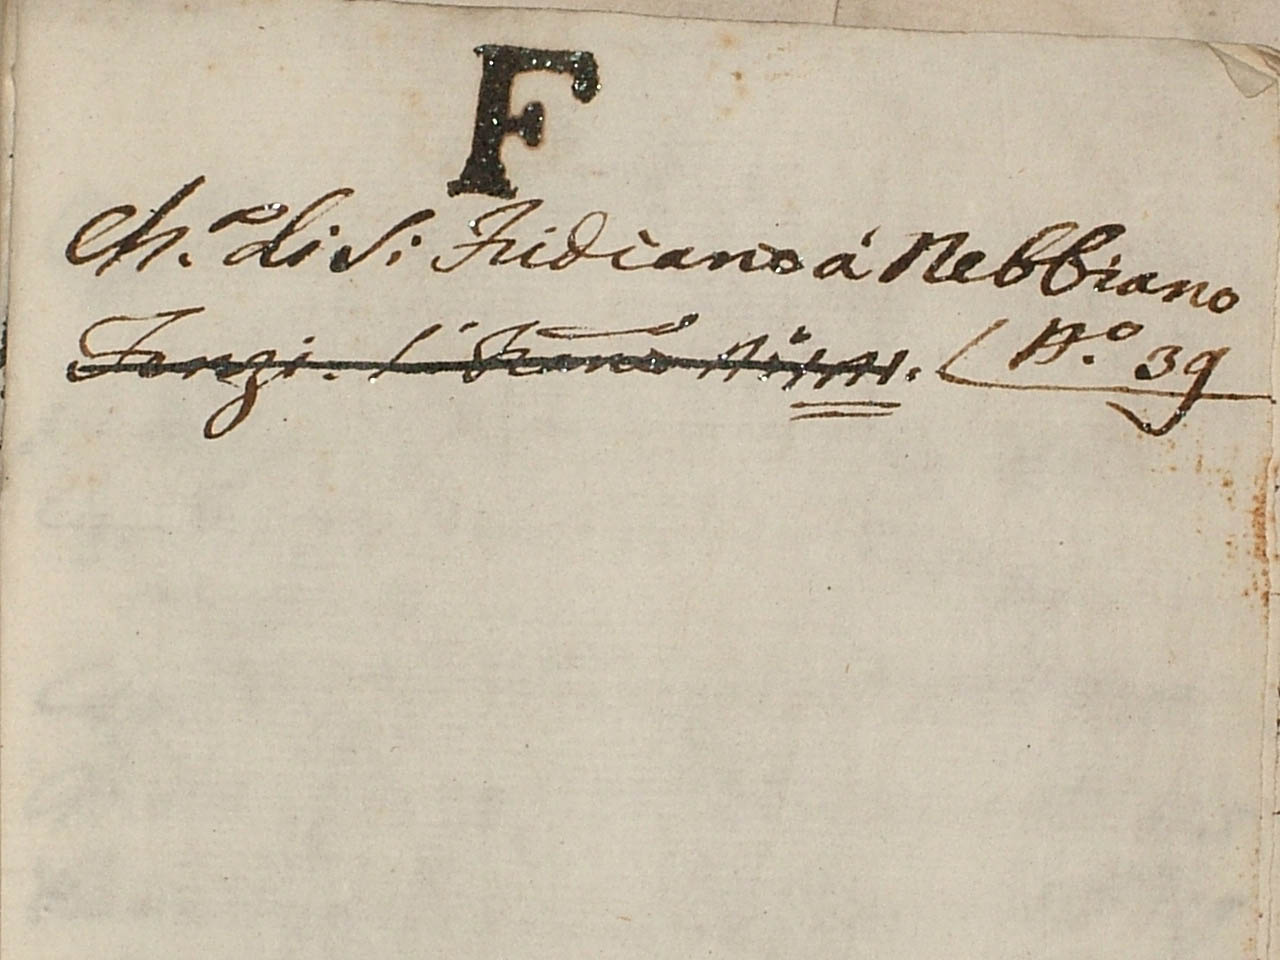 F
Ch.ª di S: Fridiano á Nebbiano
Fenzi. N.º 39